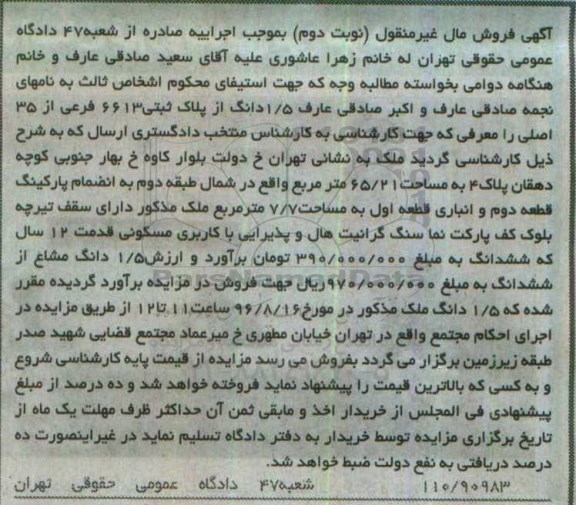 آگهی فروش مال غیرمنقول (نوبت دوم) بموجب اجراییه صادره از شعبه۴۷ دادگاه
عمومی حقوقی تهران له خانم زهرا عاشوری علیه آقای سعید صادقی عارف و خانم
هنگامه دوامی بخواسته مطالبه وجه که جهت استیفای محکوم اشخاص ثالث به نامهای
نجمه صادقی عارف و اکبر صادقی عارف ۱/۵دانگ از پلاک ثبتی۶۶۱۳ فرعی از ۳۵
اصلی را معرفی که جهت کارشناسی به کارشناس منتخب دادگستری ارسال که به شرح
ذیل کارشناسی گردید ملک به نشانی تهران خ دولت بلوار کاوه خ بهار جنوبی کوچه
دهقان پلاک۴ به مساحت۶۵/۲۱ متر مربع واقع در شمال طبقه دوم به انضمام پارکینگ
قطعه دوم و انباری قطعه اول به مساحت۷/۷ مترمربع ملک مذکور دارای سقف تیرچه
بلوک کف پارکت نما سنگ گرانیت هال و پذیرایی با کاربری مسکونی قدمت ۱۲ سال
که ششدانگ به مبلغ ۳۹۰/۰۰۰/۰۰۰ تومان برآورد و ارزش۱/۵ دانگ مشاع از
ششدانگ به مبلغ ۹۷۰/۰۰۰/۰۰۰ریال جهت فروش در مزایده برآورد گردیده مقرر
شده که ۱/۵ دانگ ملک مذکور در مورخ۹۶/۸/۱۶ ساعت۱۱ تا۱۲ از طریق مزایده در
اجرای احکام مجتمع واقع در تهران خیابان مطهری خ میرعماد مجتمع قضایی شهید صدر
طبقه زیرزمین برگزار می گردد بفروش می رسد مزایده از قیمت پایه کارشناسی شروع
و به کسی که بالاترین قیمت را پیشنهاد نماید فروخته خواهد شد و ده درصد از مبلغ
پیشنهادی فی المجلس از خریدار اخذ و مابقی ثمن آن حداکثر ظرف مهلت یک ماه از
تاریخ برگزاری مزایده توسط خریدار به دفتر دادگاه تسلیم نماید در غیراینصورت ده
درصد دریافتی به نفع دولت ضبط خواهد شد.
۱۱۰/۹۰۹۸۳ شعبه۴۷ دادگاه عمومی حقوقی تهران